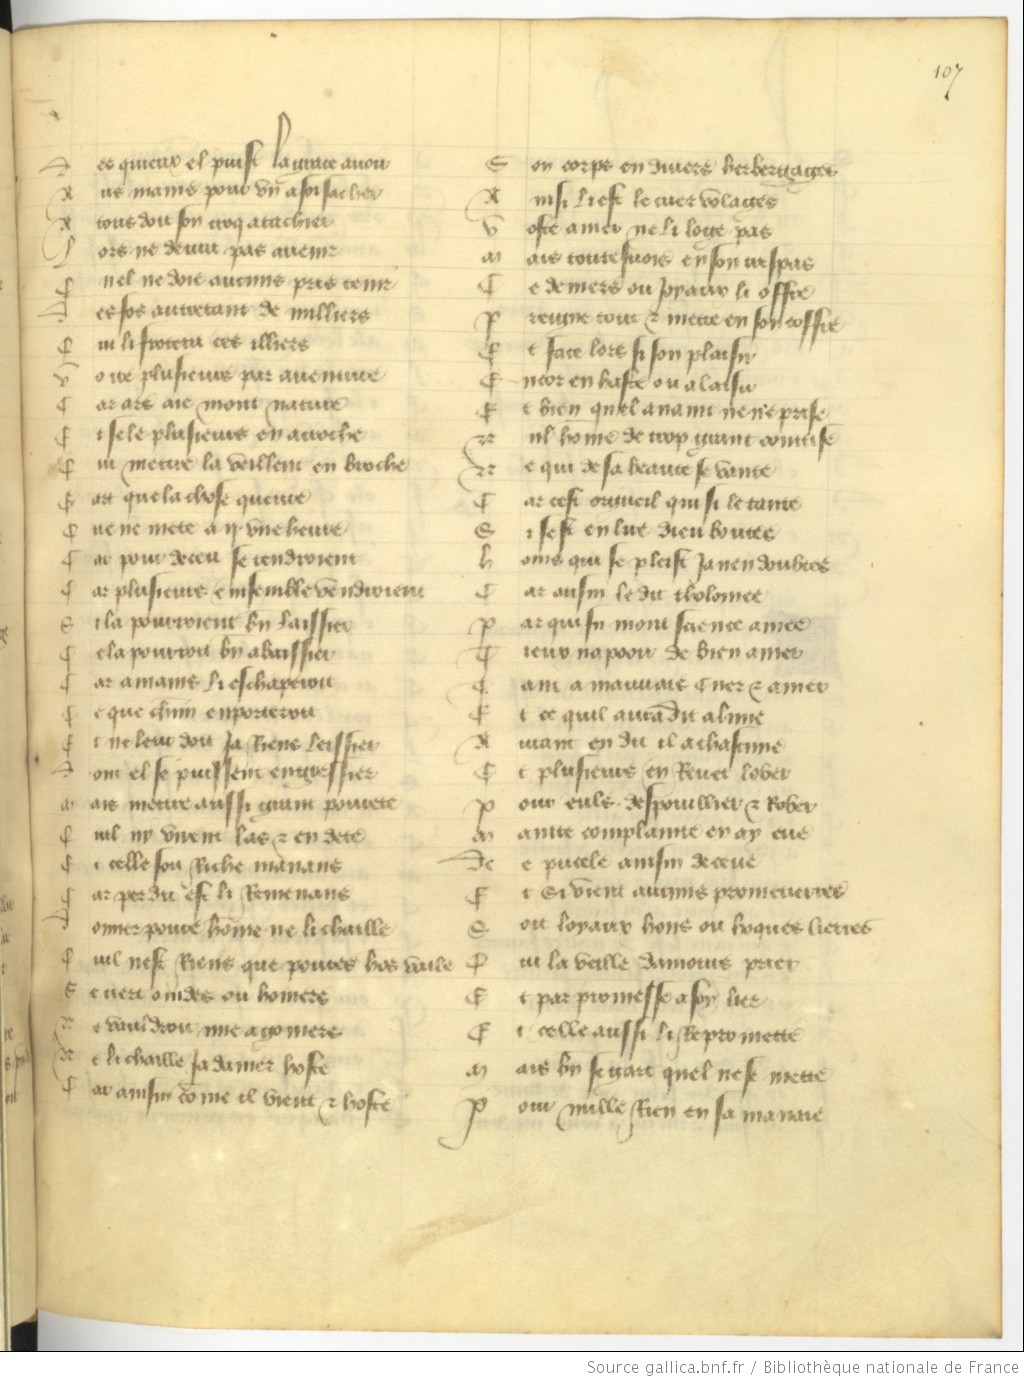 107
Des quieux el puist la grace avoir
Aus mains pour vn a soi sachier
A tous doit son croq atachier
Lors ne deura pas auenir
Quel ne doie aucuns pris tenir
Des fos autretant de milliers
Qui li froteru ces illiers
Voire plusieurs par auenture
Car ars aie mont nature
Et se le plusieurs en acroche
Qui metre la veillent en broche
Gart que la chose queure
Que ne mete a ij vne heure
Car pour deceu se tendroient
Car plusieurs ensemble vendroient
Si la pourroient bn laissier
Cela pourroit bn abaissier
Car a mains li eschaperoit
Ce que chun enporteroit
Et ne leur doit ja Riens leissier
Dont el se puissent engressier
Mais metre a si grant pourete
Quil ny viuent las z en dete
Et celle soit Riche manans
Car perdu est li Remenans
Donner poure home ne li chaille
Quil nest Riens que poures hos vaile
Se uert ouides ou homers
Ne vauldroit mie a gomers
Ne li chaille ja damer hoste
Car ainsin come il vient z hoste
Son corps en diuers herbergages
Ainsi li est le cuer volages
Voste amer ne li loge pas
Mais toutesuois en son trespas
Ce deniers ou joyaux li offre
Preigne tout z mette en son coffre
Et face lors si son plaisir
Encor en haste ou a laisir
Et bien quel anaint ne ne prise
Nul home de trop grant cointise
Ne qui de sa beaute se vante
Car cest orgueil qui si le tante
Si sest en lire dieu boutes
Homs qui se pleist Ja nen doubtes
Car ausin le dit tholomee
Par qui fu mont science amee
Tieux na pooir de bien amer
Tant a mauuais Cuer z amer
Et ce quil aura dit a lune
Autant en dit il a chascune
Et plusieurs en Reuet lober
Pour euls despouillier z Rober
Mainte complainte en ay eue
De pucele ainsin deceue
Et Si vient aucuns prometierres
Soit loyaux hons ou hoques lierres
Qui la veille damours prier
Et par promesse a soy lier
Et celle aussi li Repromette
Mais bn se gart quel ne se mette
Pour nulle Rien en sa manaie
Source gallica.bnf.fr / Bibliothèque nationale de France